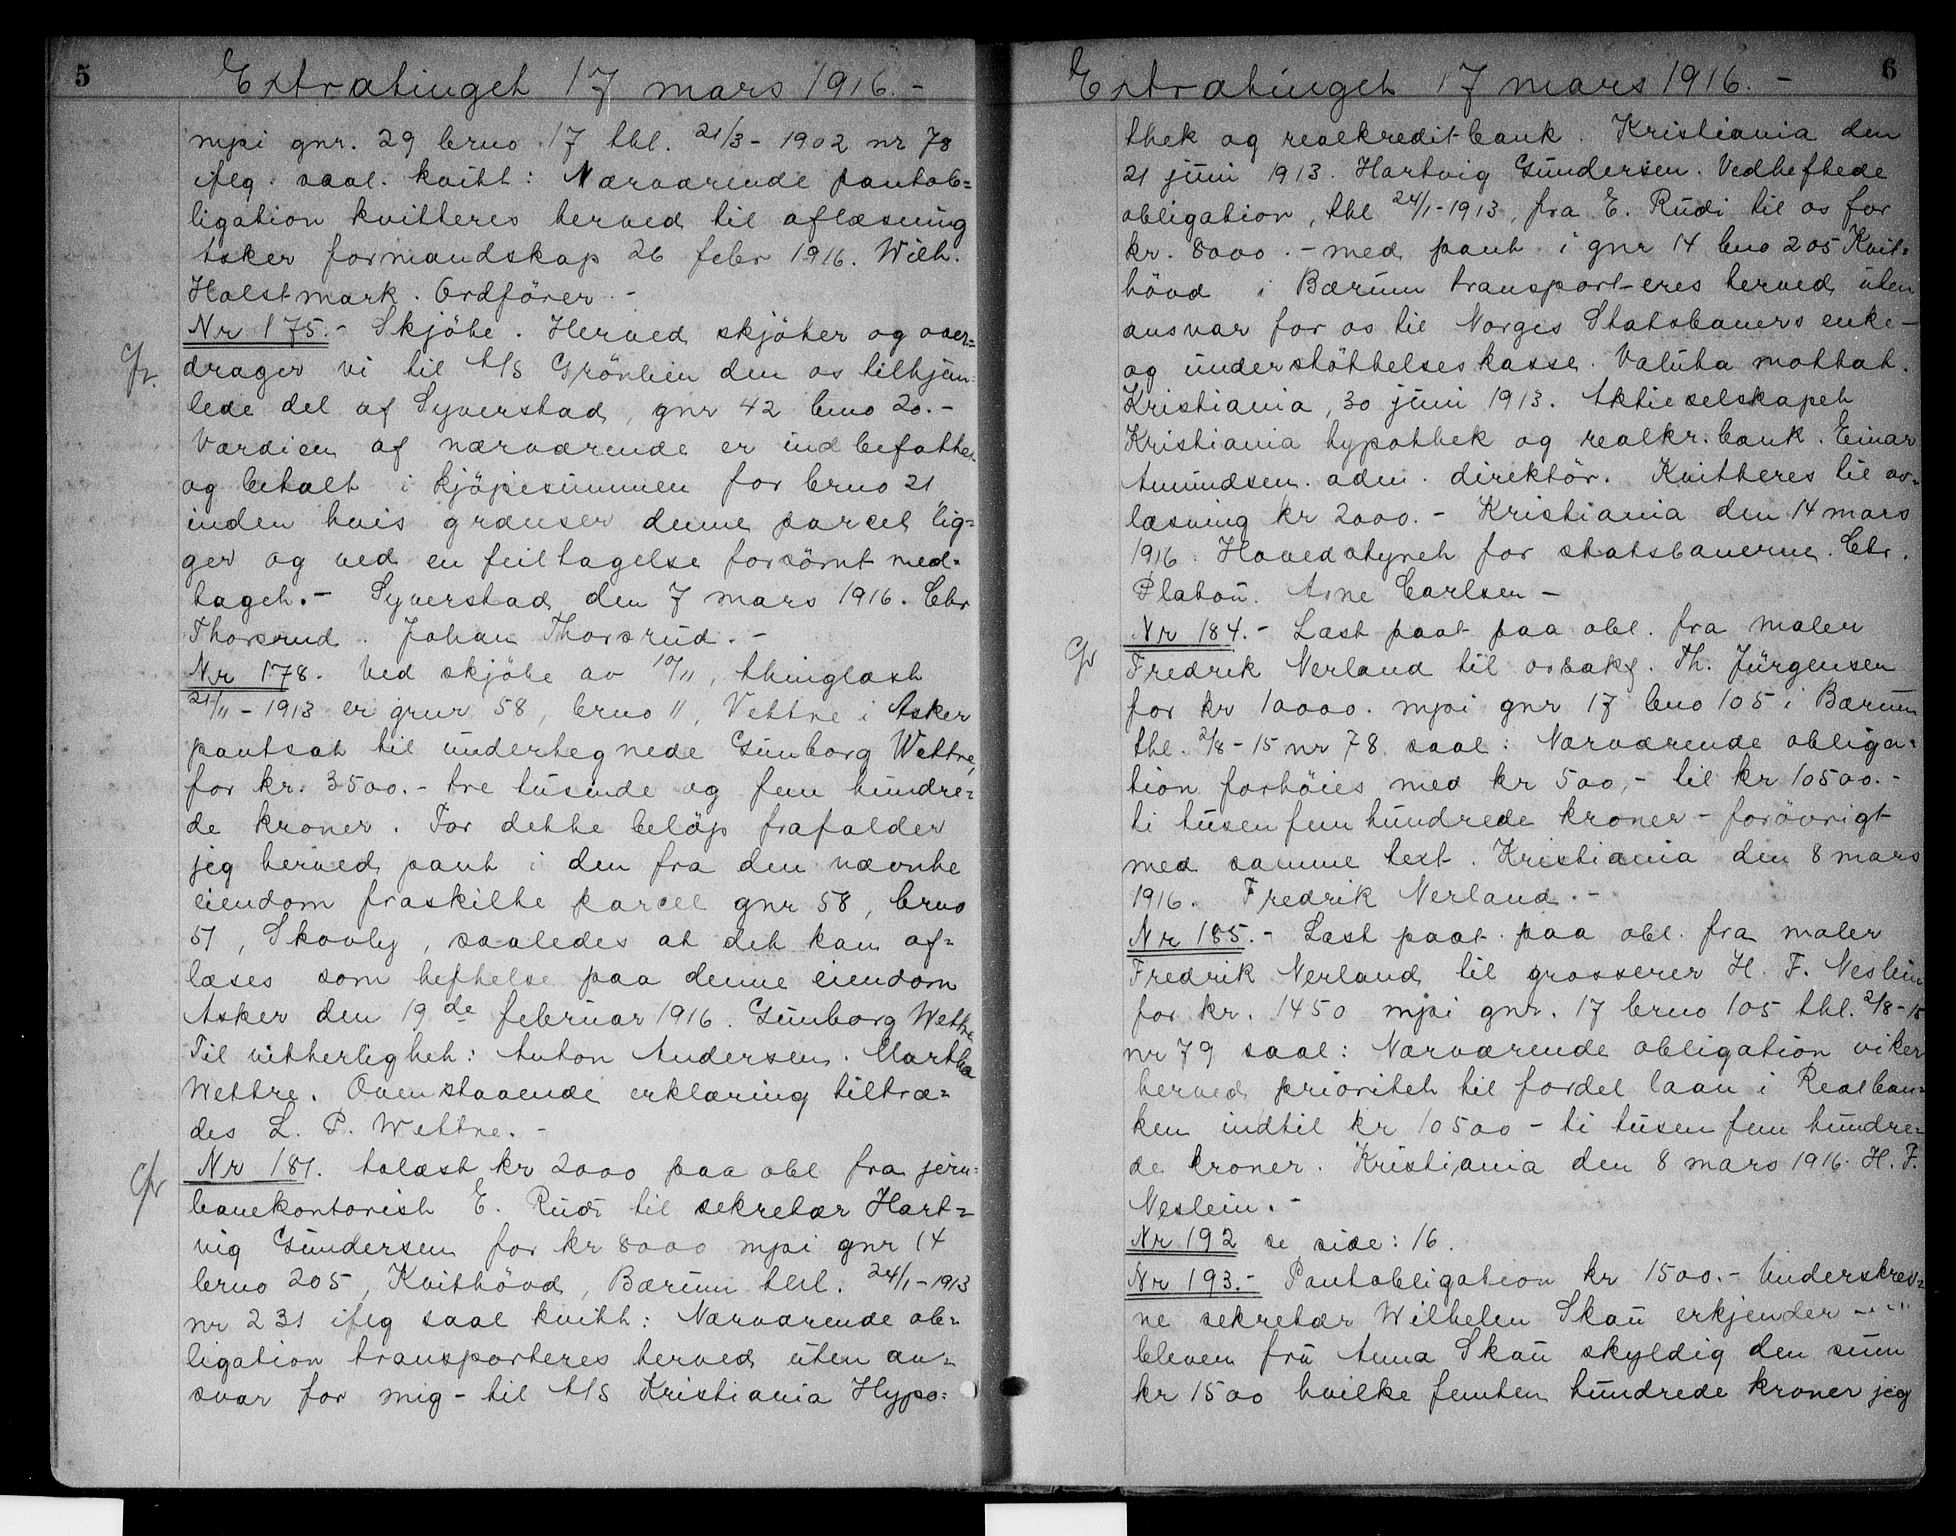 5
Extratinget 17 mars 1916.-
mpi gnr. 29 bruo 17 tbl. 21/3-1902 nr 78
ifłg. saal. kvitt: Nærværende pantob=
ligation kvitteres herved til aflæsning
Asker formandskap 26 febr 1916. Wilh.
Holstmark. Ordförer.-
Nr 175.- Skjöte. Herved skjöter og over=
drager vi til A/S Grönlien den os tilhjem
lede del af Syverstad, gnr 42 bno 20.-
Værdien af nærværende er indbefattet
og betalt i kjöpesummen for bruo 21
inden hvis grænser denne parcel lig=
ger og ved en feiltagelse forsömt med=
taget.- Syverstad den 7 mars 1916. Chr
Thorsrud. Johan Thorsrud.-
Nr 178. Ved skjöte av 10/11, thinglæst
21/11-1913 er gnr 58, bruo 11, Vettre i Asker
pantsat til undertegnede Gunborg Wettre,
for kr. 3500.- tre tusinde og fem hundre=
de kroner. For dette belöp frafalder
jeg herved pant i den fra den nævnte
eiendom fraskilte parcel gnr 58, bruo
51, Skovly, saaledes at det kan af=
læses som heftelse paa denne eiendom
Asker den 19de februar 1916. Gunborg Wettre
Til vitterlighet: Anton Andersen. Martha
Wettre. Ovenstaaende erklæring tiltræ=
des L. P. Wettre.-
Nr 181. Avlæst kr 2000 paa obl fra jern=
banekontorist E. Rudi til sekretær Hart=
vig Gundersen for kr 8000 mpi gnr 14
bruo 205, Kvithövd, Bærum tbl. 24/1-1913
nr 231 iflg saal kvitt: Nærværende ob=
ligation transporteres herved uten an=
svar for mig - til A/S Kristiania Hypo=
6
Extratinget 17 mars 1916.-
thek og realkreditbank. Kristiania den
21 juni 1913. Hartvig Gundersen. Vedheftede
obligation, tbl 24/1-1913, fra E. Rudi til os for
kr. 8000.- med pant i gnr 14 bno 205 Kvit=
hövd i Bærum transporteres herved uten
ansvar for os til Norges Statsbaners enke-
og understöttelseskasse. Valuta mottat.
Kristiania, 30 juni 1913. Aktieselskapet
Kristiania hypothek og realkr. bank. Einar
Amundsen. adm. direktör. Kvitteres til av-
læsning kr 2000.- Kristiania den 14 mars
1916. Hovedstyret for statsbanerne. Chr.
Platou. Arne Carlsen-
Nr 184.- Læst paat paa obl. fra maler
Fredrik Nerland til Th. Jürgensen
for kr 10000. mpi gnr 17 bno 105 i Bærum
tbl. 2/8-15 nr 78 saal: Nærværende obliga=
tion forhöies med kr 500,- til kr 10500.-
ti tusen fem hundrede kroner - forövrigt
med samme text. Kristiania den 8 mars
1916. Fredrik Nerland.-
Nr 185.- Læst paat. paa obl. fra maler
Fredrik Nerland til grosserer H. F. Neslein
for kr. 1450 mpi gnr. 17 bruo 105 tbl. 2/8-15
nr 79 saal: Nærværende obligation viker
herved prioritet til fordel laan i Realban=
ken indtil kr 10500 - ti tusen fem hundre=
de kroner. Kristiania den 8 mars 1916. H. F.
Neslein.-
Nr 192 se side: 16.
Nr 193.- Pantobligation kr 1500.- Underskrev=
ne sekretær Wilhelm Skau erkjender
bleven fru Anna Skau skyldig den sum
kr 1500 hvilke femten hundrede kroner jeg